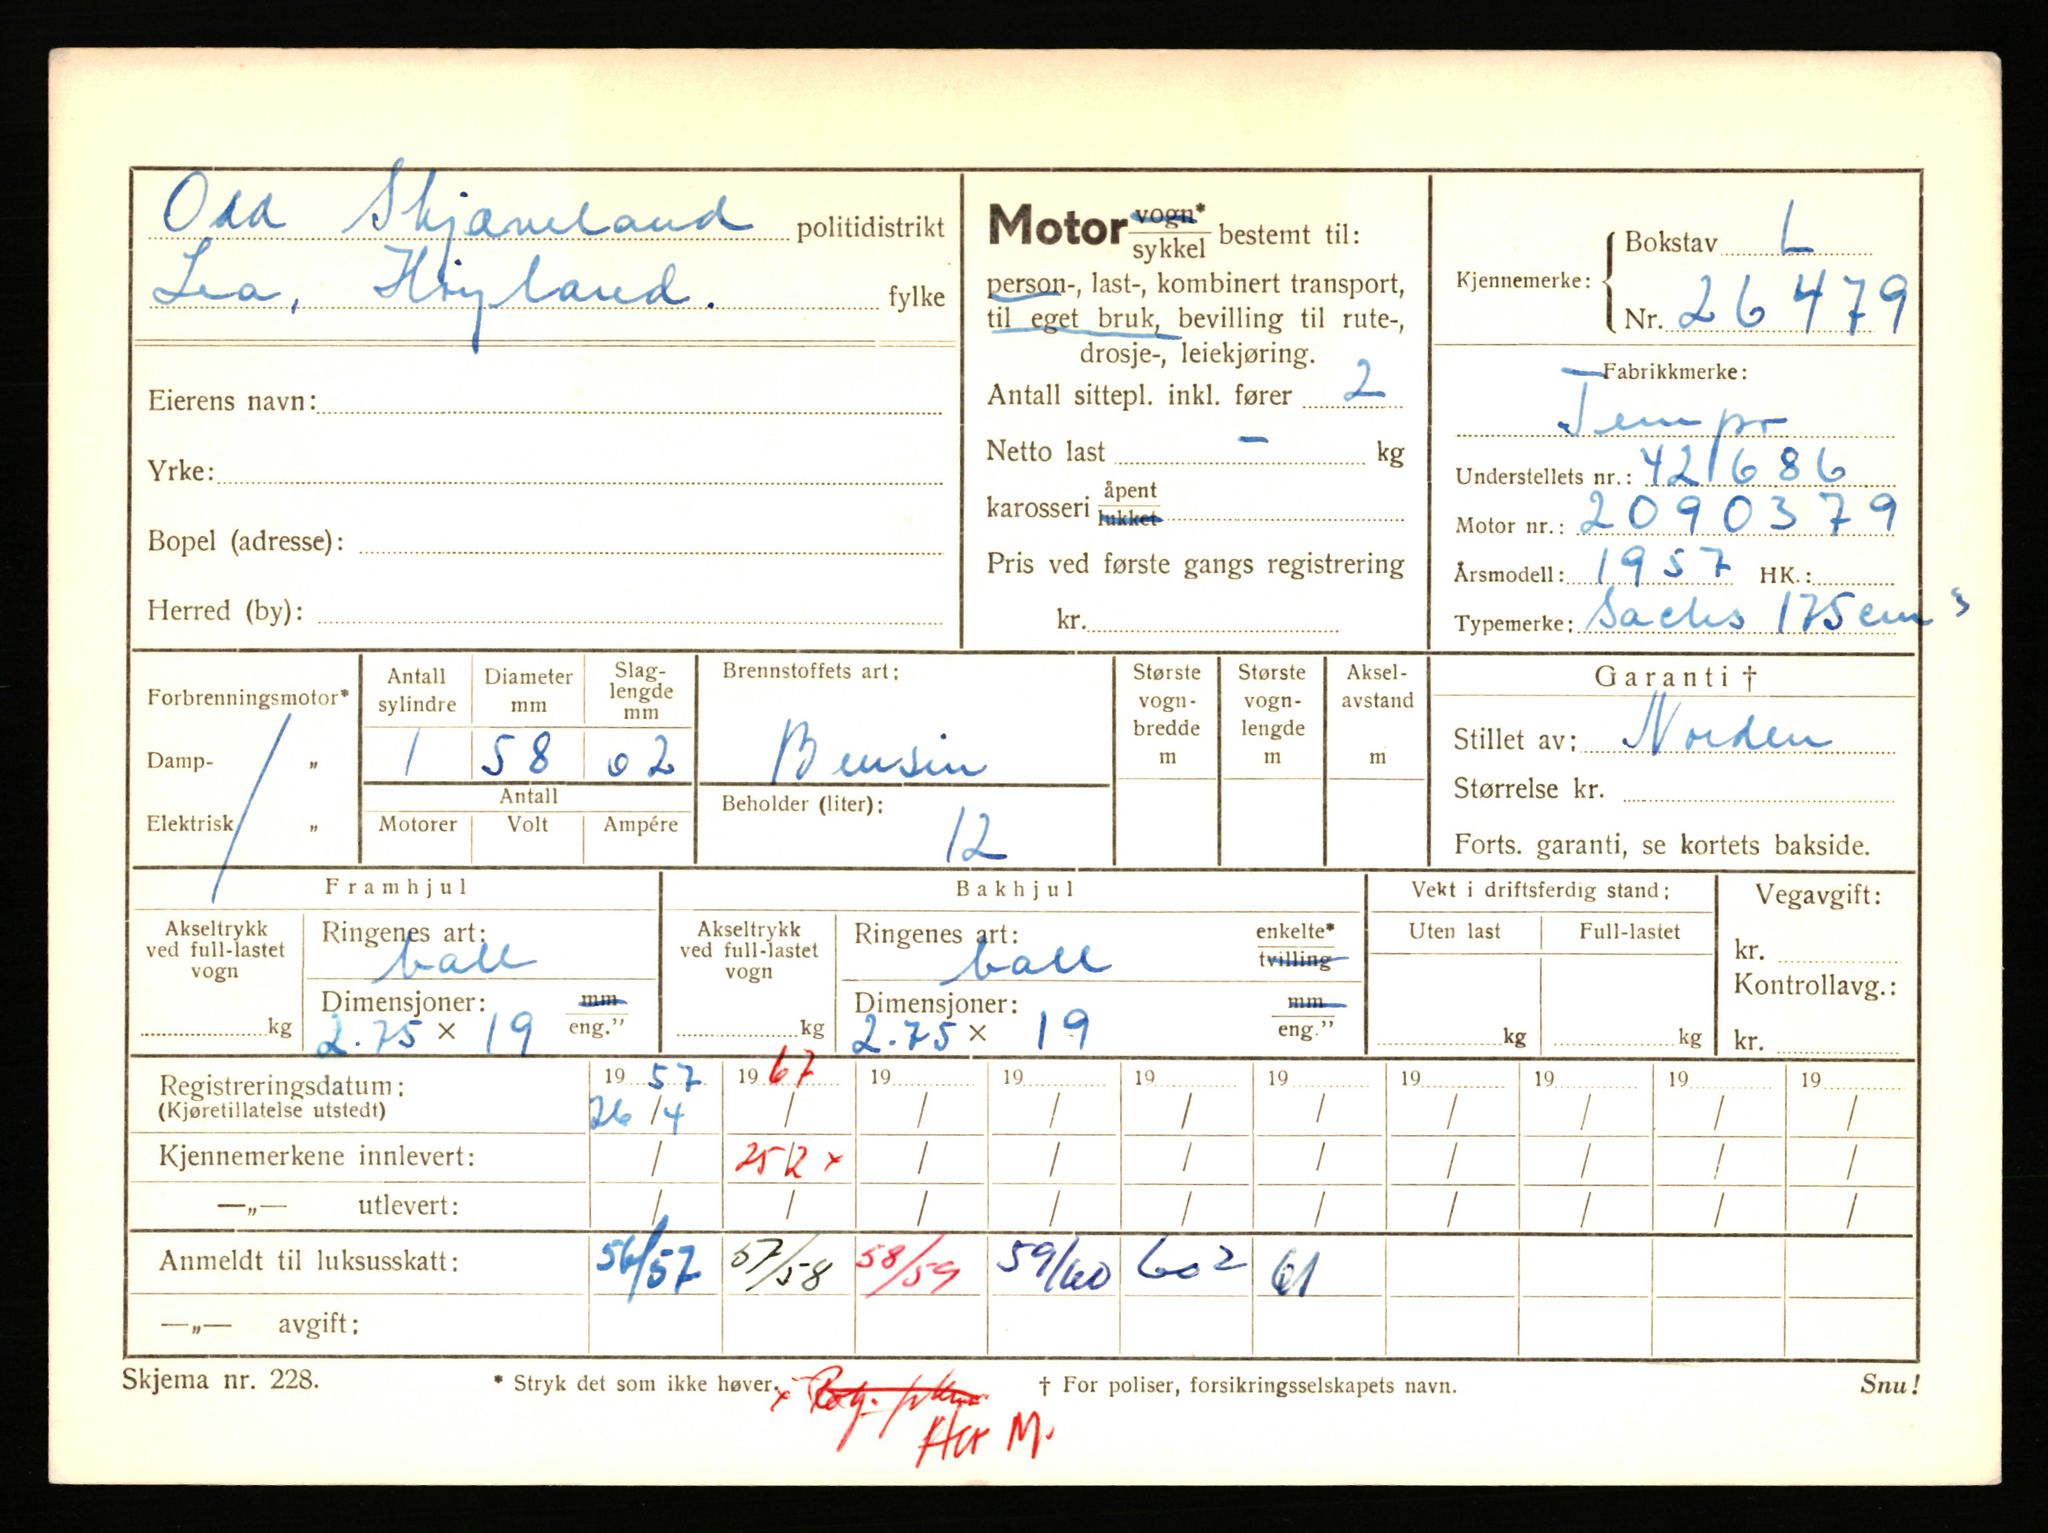 Odd Skjæveland politidistrikt
Lea, Høyland. fylke
Eierens navn:
Yrke:
Bopel (adresse):
Herred (by):
Motor vogn*/sykkel bestemt til:
person-, last-, kombinert transport,
til eget bruk, bevilling til rute-,
drosje-, leiekjøring.
Antall sittepl. inkl. fører 2
Netto last – kg
karosseri åpent/lukket
Pris ved første gangs registrering
kr.
Kjennemerke: Bokstav L
Nr. 26479
Fabrikkmerke:
Tempo
Understellets nr.: 421686
Motor nr.: 2090379
Årsmodell: 1957 HK.:
Typemerke: Sachs 175 cm³
Forbrenningsmotor*
Damp- „
Elektrisk „
Antall sylindre Diameter mm Slaglengde mm
1 58 62
Antall
Motorer Volt Ampére
Brennstoffets art:
Bensin
Beholder (liter):
12
Største vogn-bredde m
Største vogn-lengde m
Aksel-avstand m
Garanti †
Stillet av: Norden
Størrelse kr.
Forts. garanti, se kortets bakside.
Framhjul
Akseltrykk ved full-lastet vogn
kg
Ringenes art:
ball
Dimensjoner: mm/eng."
2.75 × 19
Bakhjul
Akseltrykk ved full-lastet vogn
kg
Ringenes art: enkelte*/tvilling
ball
Dimensjoner: mm/eng."
2.75 × 19
Vekt i driftsferdig stand:
Uten last Full-lastet
kg kg
Vegavgift:
kr.
Kontrollavg.:
kr.
Registreringsdatum: 1957 1967 19 19 19 19 19 19 19 19
(Kjøretillatelse utstedt) 26/4 / / / / / / / / /
Kjennemerkene innlevert: / 25/2 × / / / / / / / /
—„— utlevert: / / / / / / / / / /
Anmeldt til luksusskatt: 56/57 57/58 58/59 59/60 602 61
—„— avgift:
Skjema nr. 228. * Stryk det som ikke høver. † For poliser, forsikringsselskapets navn. Snu!
×
M.